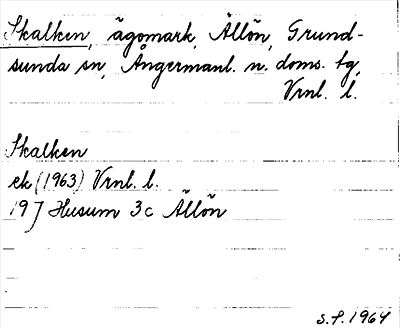 Skalken, ägomark, Ällön, Grund-
sunda sn, Ångermanl. n. doms. tg,
Vrnl. l.
Skalken
ek (1963) Vrnl. l.
19J Husum 3c Ällön
S.F. 1964